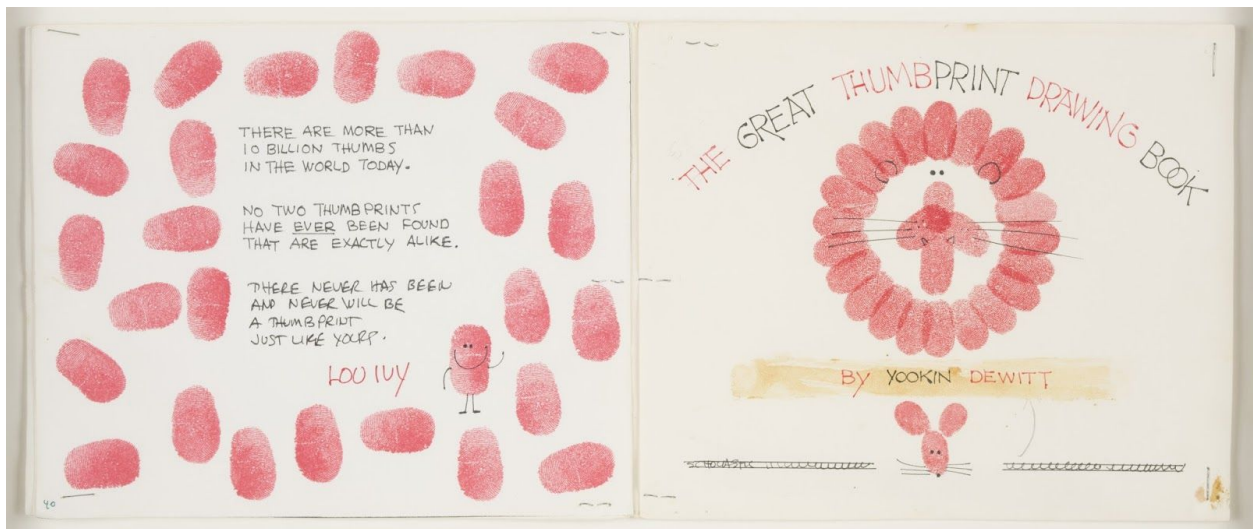 THERE ARE MORE THAN
10 BILLION THUMBS
IN THE WORLD TODAY.
NO TWO THUMBPRINTS
HAVE EVER BEEN FOUND
THAT ARE EXACTLY ALIKE.
THERE NEVER HAS BEEN
AND NEVER WILL BE
A THUMBPRINT
JUST LIKE YOURS.
LOU IVY
40
THE GREAT THUMBPRINT DRAWING BOOK
BY YOOKIN DEWITT
SCHOLASTIC